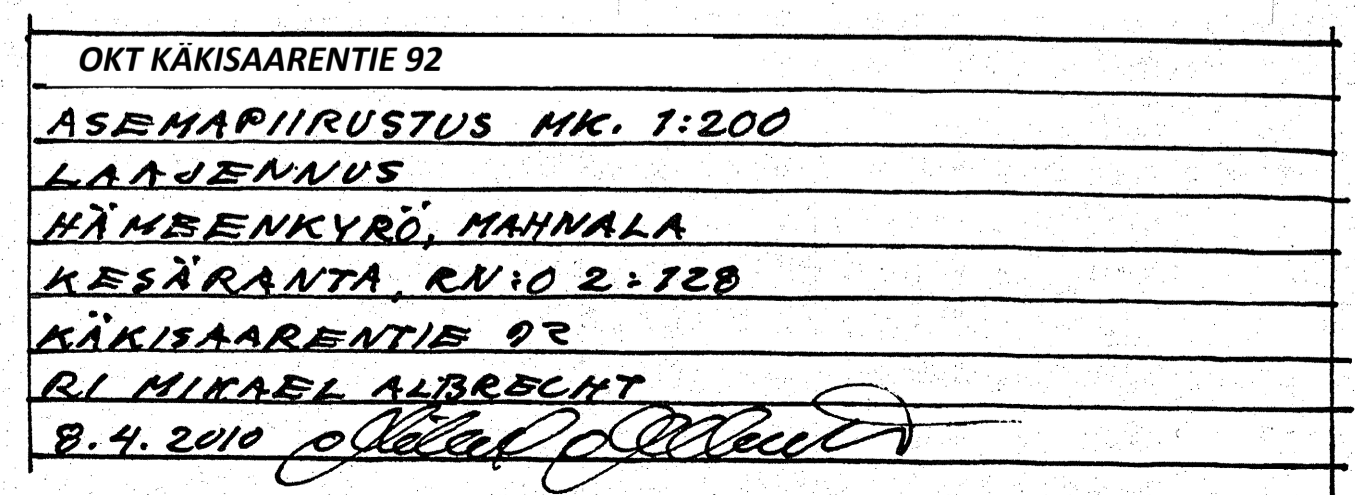 OKT KÄKISAARENTIE 92
ASEMAPIIRUSTUS MK. 1:200
LAAJENNUS
HÄMEENKYRÖ, MAHNALA
KESÄRANTA, RN:O 2:128
KÄKISAARENTIE 92
RI MIKAEL ALBRECHT
8.4.2010